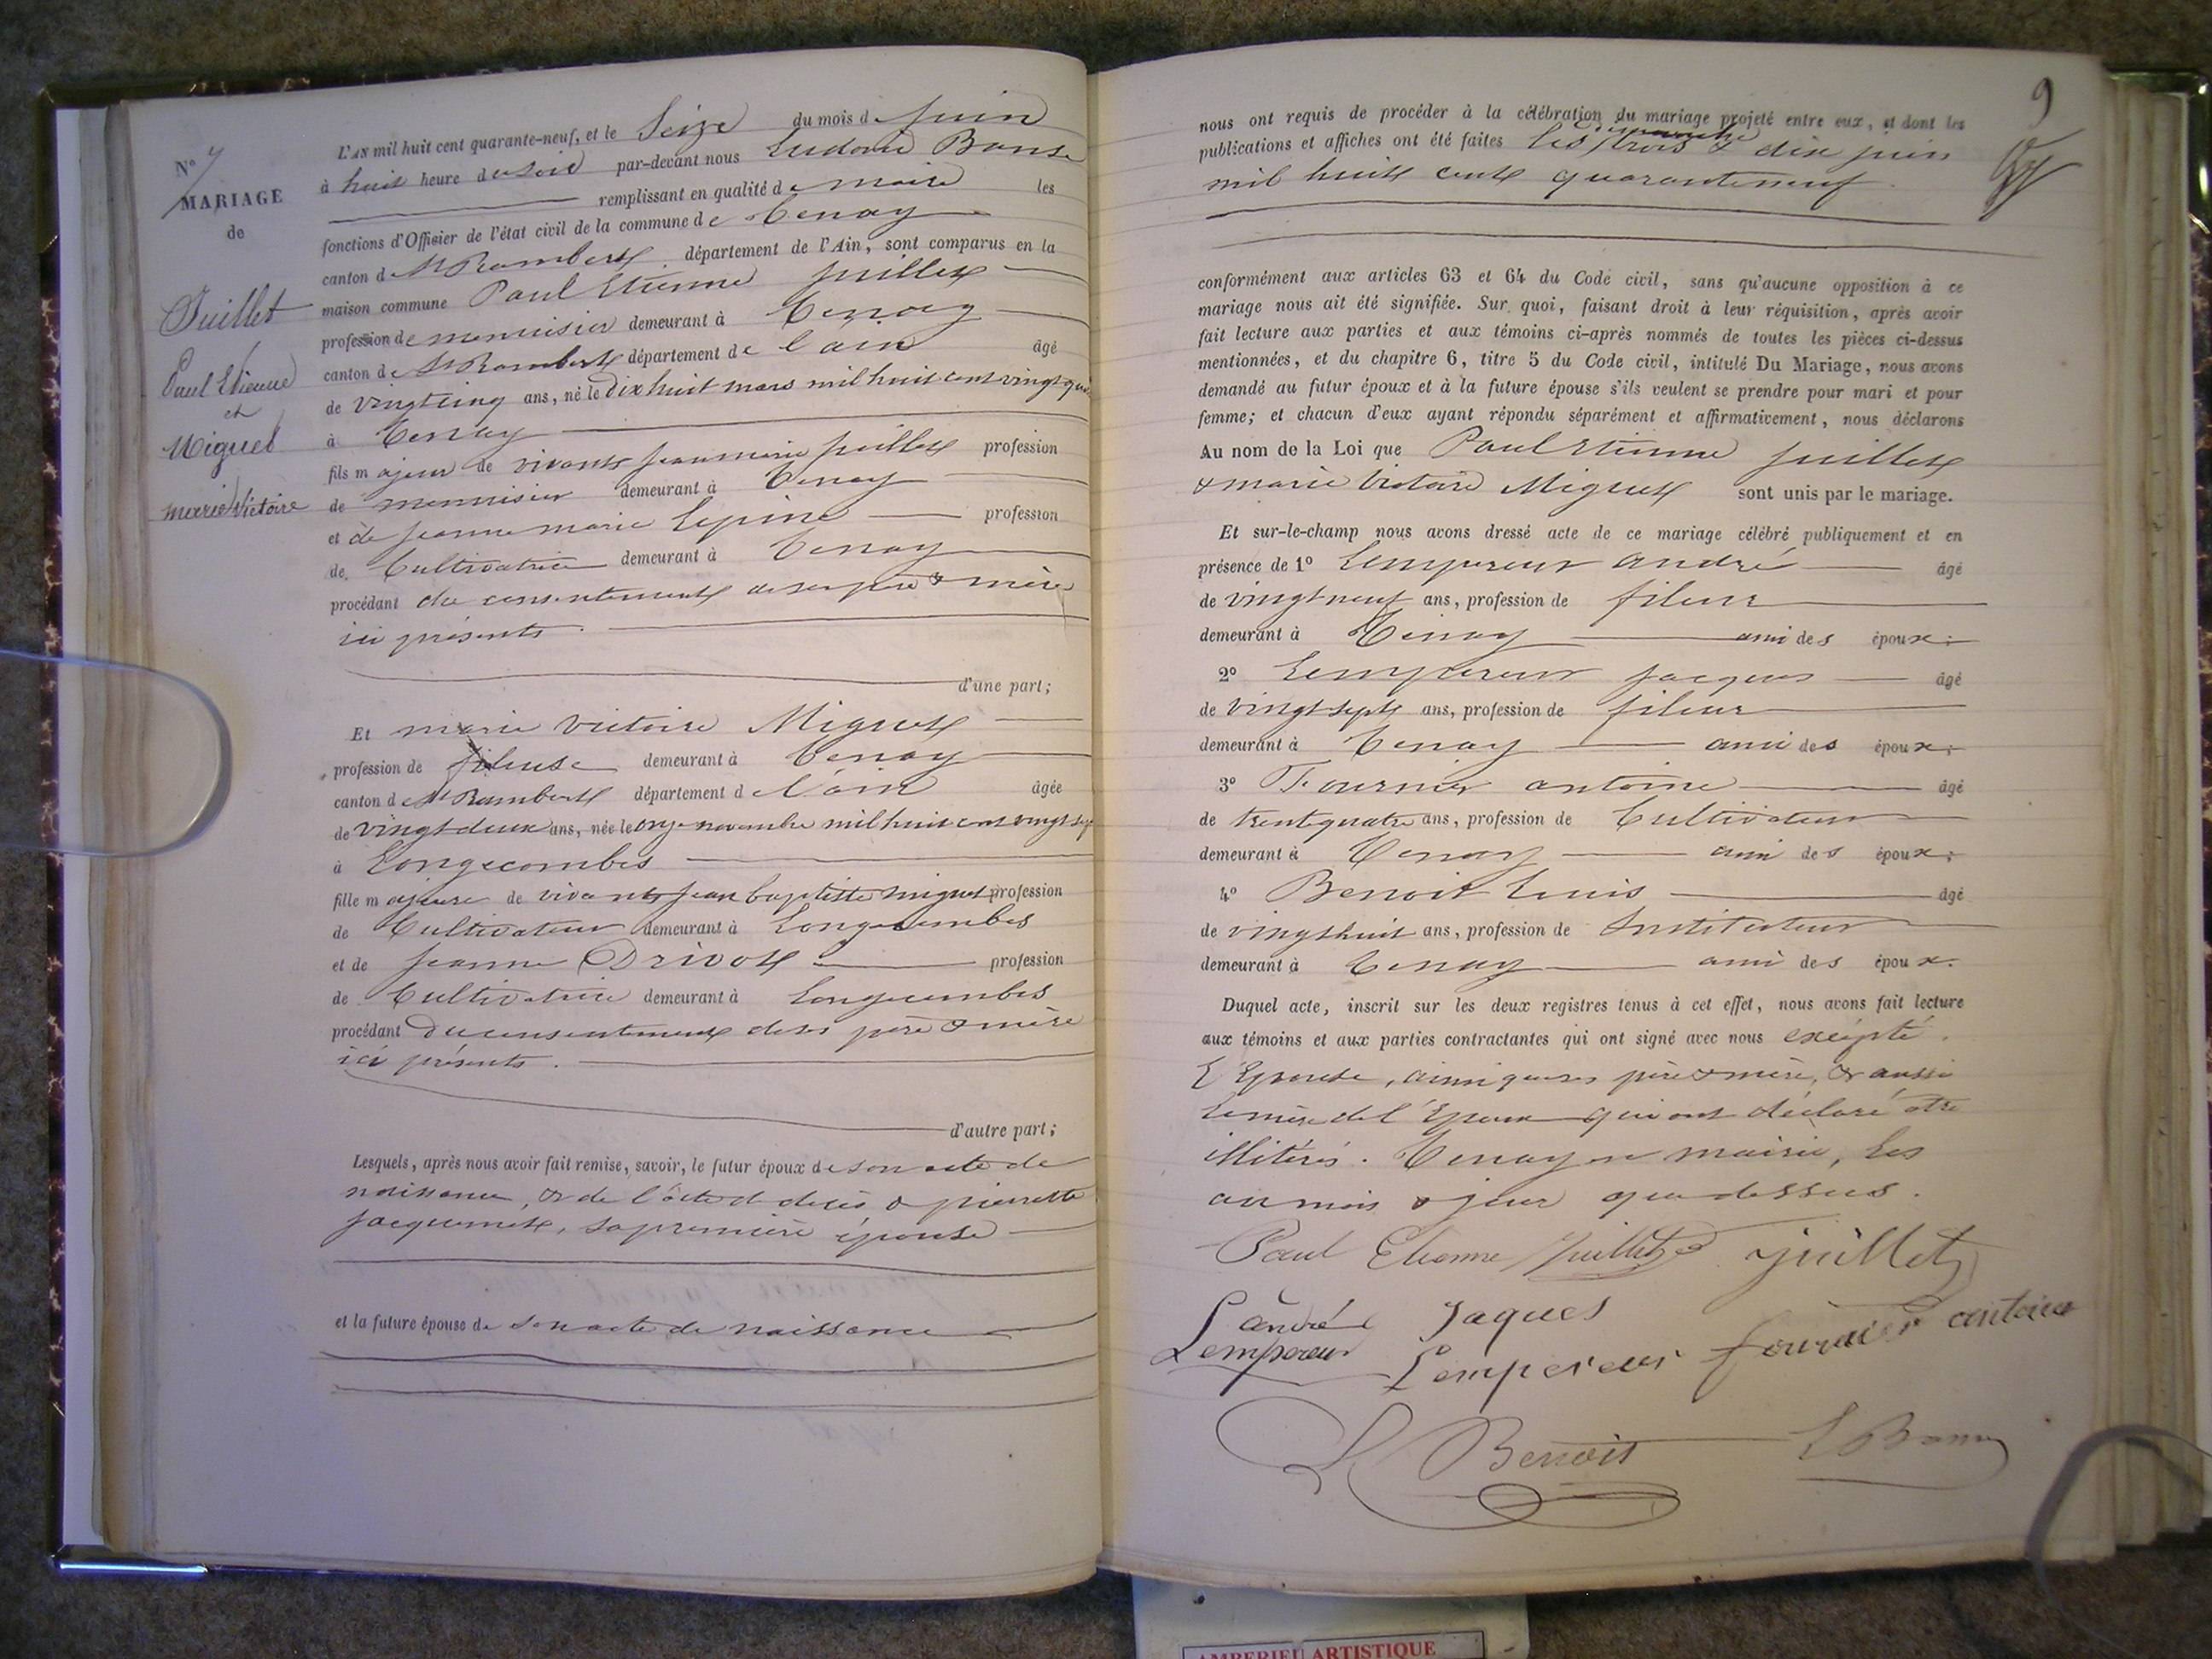 N° 7
MARIAGE
de
Juillet
Paul Etienne
et
Miguet
marie Victoire
L'AN mil huit cent quarante-neuf, et le Seize du mois de juin
à huit heure du soir par-devant nous Ludovic Bonne
remplissant en qualité de maire les
fonctions d'Officier de l'état civil de la commune de Tenay
canton de St Rambert département de l'Ain, sont comparus en la
maison commune Paul Etienne juillet
profession de menuisier demeurant à Tenay
canton de St Rambert département de l'ain âgé
de vingt cinq ans, né le dix huit mars mil huit cent vingt quatre
à Tenay
fils majeur de vivants jeanmarie juillet profession
de menuisier demeurant à Tenay
et de jeanne marie Lepine profession
de Cultivatrice demeurant à Tenay
procédant du consentement de ses père & mère
ici présents.
d'une part;
Et marie victoire Miguet
profession de fileuse demeurant à Tenay
canton de St Rambert département de l'ain âgée
de vingt deux ans, née le onze novembre mil huit cent vingt sept
à Longecombes
fille majeure de vivants jean baptiste miguet profession
de Cultivateur demeurant à Longecombes
et de jeanne Drivot profession
de Cultivatrice demeurant à Longecombes
procédant du consentement de ses père & mère
ici présents.
d'autre part;
Lesquels, après nous avoir fait remise, savoir, le futur époux de son acte de
naissance, & de l'acte de décès de pierrette
jacquemet, sa première épouse
et la future épouse de son acte de naissance
9
nous ont requis de procéder à la célébration du mariage projeté entre eux, et dont les
dimanche
publications et affiches ont été faites les trois & dix juin
mil huit cent quarante neuf.
conformément aux articles 63 et 64 du Code civil, sans qu'aucune opposition à ce
mariage nous ait été signifiée. Sur quoi, faisant droit à leur réquisition, après avoir
fait lecture aux parties et aux témoins ci-après nommés de toutes les pièces ci-dessus
mentionnées, et du chapitre 6, titre 5 du Code civil, intitulé Du Mariage, nous avons
demandé au futur époux et à la future épouse s'ils veulent se prendre pour mari et pour
femme; et chacun d'eux ayant répondu séparément et affirmativement, nous déclarons
Au nom de la Loi que Paul Etienne juillet
& marie Victoire Miguet sont unis par le mariage.
Et sur-le-champ nous avons dressé acte de ce mariage célébré publiquement et en
présence de 1° Lempereur andré âgé
de vingt neuf ans, profession de fileur
demeurant à Tenay ami des époux;
2° Lempereur jacques âgé
de vingt sept ans, profession de fileur
demeurant à Tenay ami des époux;
3° Fournier antoine âgé
de trente quatre ans, profession de Cultivateur
demeurant à Tenay ami des époux;
4° Benoit Louis âgé
de vingt huit ans, profession de Instituteur
demeurant à Tenay ami des époux.
Duquel acte, inscrit sur les deux registres tenus à cet effet, nous avons fait lecture
aux témoins et aux parties contractantes qui ont signé avec nous excepté
L'Epouse, ainsi que ses père & mère, & aussi
la mère de l'Epoux qui ont déclaré être
illitérés. Tenay en mairie, les
an mois & jour que dessus.
Paul Etienne juillet juillet
andré Jaques
Lempereur Lempereur fournier antoine
L Benoit L Bonne
AMBERIEU ARTISTIQUE